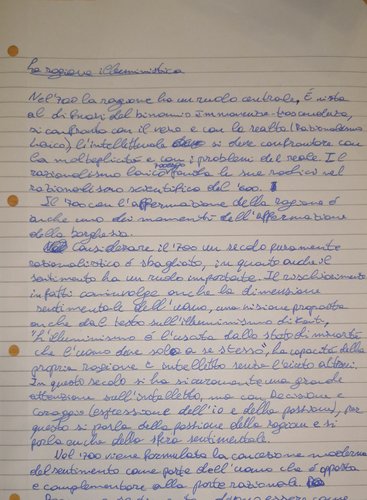 La ragione illuministica
Nel '700 la ragione ha un ruolo centrale. È vista
al di fuori del binomio Immanenza-trascendenza,
si confronta con il vero e con la realtà (Razionalismo
laico). L'intellettuale si deve confrontare con
la molteplicità e con i problemi del reale. Il
razionalismo laico fonda le sue radici nel
razionalismo scientifico del '600.
Il '700 con l'affermazione della ragione è
anche uno dei momenti dell'affermazione
della borghesia.
Considerare il '700 un secolo puramente
razionalistico è sbagliato, in quanto anche il
sentimento ha un ruolo importante. Il rischiaramento
infatti coinvolge anche la dimensione
sentimentale dell'uomo, una visione proposta
anche dal testo sull'illuminismo di Kant,
"l'illuminismo è l'uscita dallo stato di minorità
che l'uomo deve solo a se stesso", ha capacità della
propria ragione e intelletto senza l'aiuto altrui.
In questo secolo si ha sicuramente una grande
attenzione sull'intelletto, ma con Decisione e
Coraggio (espressione dell'io e della passione), per
questo si parla della passione della ragione e si
parla anche della sfera sentimentale.
Nel '700 viene formulata la concezione moderna
del sentimento come parte dell'uomo che è opposta
e complementare alla parte razionale.